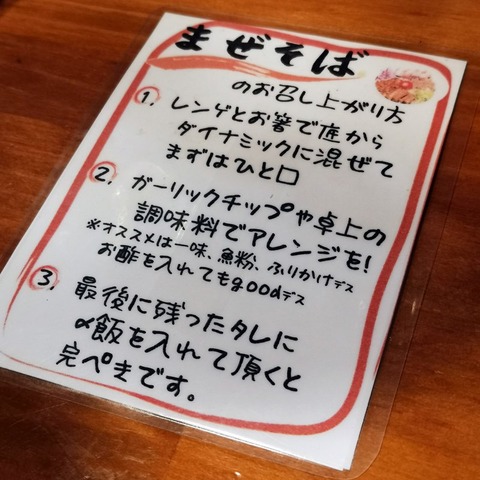 まぜそば
のお召し上がり方
1. レンゲとお箸で底から
ダイナミックに混ぜて
まずはひと口
2. ガーリックチップや卓上の
調味料でアレンジを!
※オススメは一味、魚粉、ふりかけデス
お酢を入れてもgoodデス
3. 最後に残ったタレに
〆飯を入れて頂くと
完ぺきです。